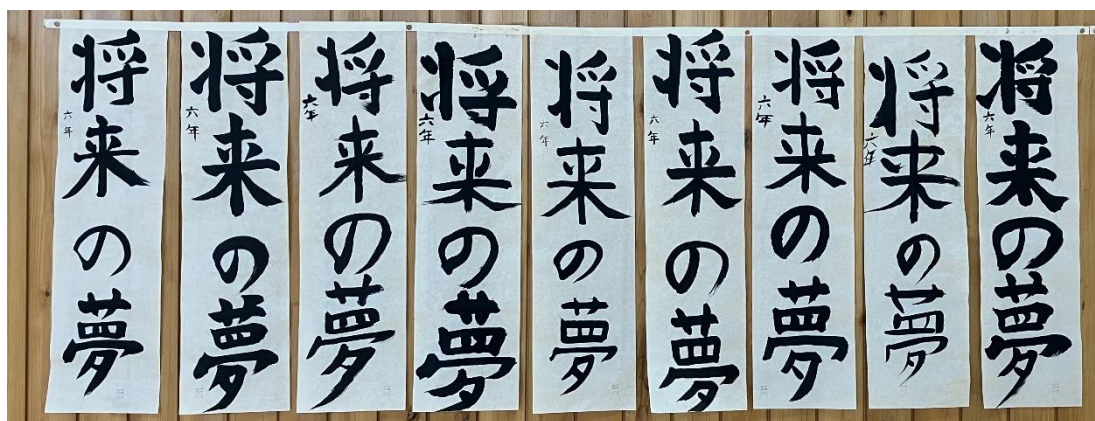 将来の夢
六年
将来の夢
六年
将来の夢
六年
将来の夢
六年
将来の夢
六年
将来の夢
六年
将来の夢
六年
将来の夢
六年
将来の夢
六年